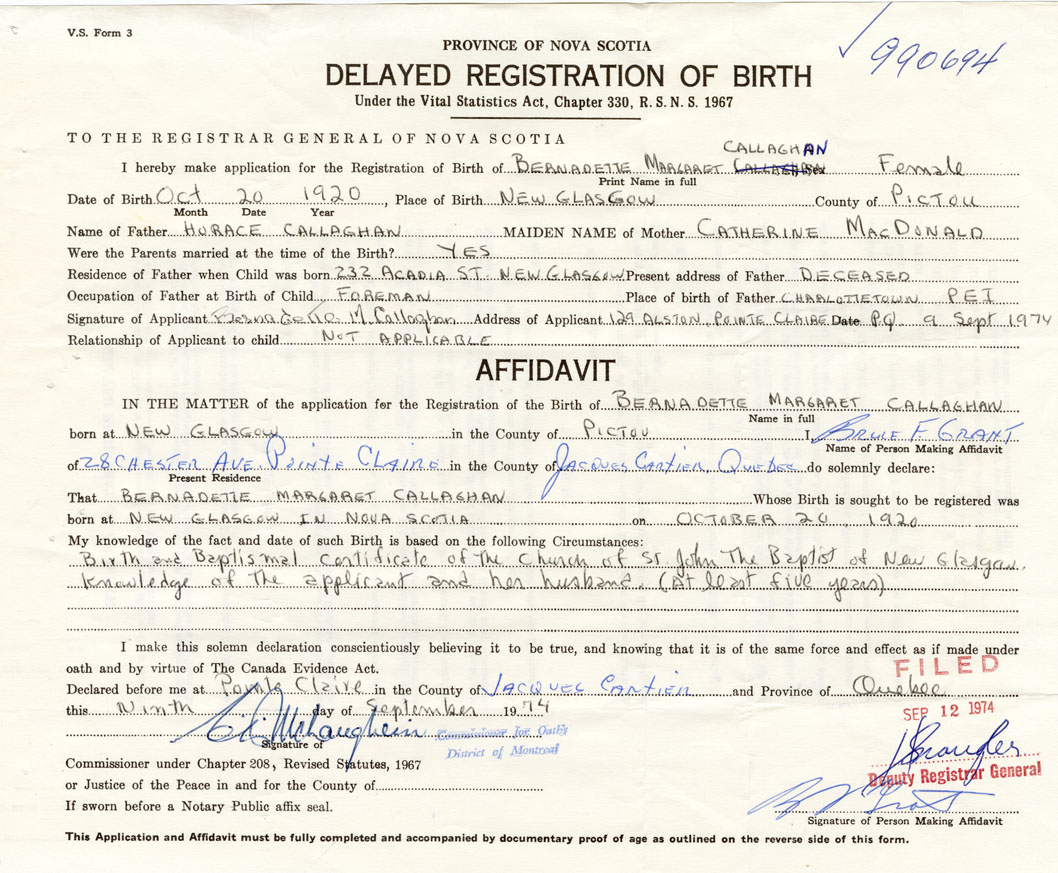 V.S. Form 3
990694
PROVINCE OF NOVA SCOTIA
DELAYED REGISTRATION OF BIRTH
Under the Vital Statistics Act, Chapter 330, R.S.N.S. 1967
TO THE REGISTRAR GENERAL OF NOVA SCOTIA
CALLAGHAN
I hereby make application for the Registration of Birth of BERNADETTE MARGARET Sex Female
Print Name in full
Date of Birth Oct 20 1920, Place of Birth NEW GLASGOW County of PICTOU
Month Date Year
Name of Father HORACE CALLAGHAN MAIDEN NAME of Mother CATHERINE MACDONALD
Were the Parents married at the time of the Birth? YES
Residence of Father when Child was born 232 ACADIA ST NEW GLASGOW Present address of Father DECEASED
Occupation of Father at Birth of Child FOREMAN Place of birth of Father CHARLOTTETOWN PEI
Signature of Applicant Bernadette M. Callaghan Address of Applicant 129 ALSTON, POINTE CLAIRE Date P.Q. 9 Sept 1974
Relationship of Applicant to child NOT APPLICABLE
AFFIDAVIT
IN THE MATTER of the application for the Registration of the Birth of BERNADETTE MARGARET CALLAGHAN
Name in full
born at NEW GLASGOW in the County of PICTOU I, BRUCE F. GRANT
Name of Person Making Affidavit
of 28 CHESTER AVE. POINTE CLAIRE in the County of JACQUES CARTIER, QUEBEC do solemnly declare:
Present Residence
That BERNADETTE MARGARET CALLAGHAN Whose Birth is sought to be registered was
born at NEW GLASGOW IN NOVA SCOTIA on OCTOBER 20, 1920
My knowledge of the fact and date of such Birth is based on the following Circumstances:
Birth and Baptismal certificate of the Church of St. John The Baptist of New Glasgow.
Knowledge of the applicant and her husband. (At least five years)
I make this solemn declaration conscientiously believing it to be true, and knowing that it is of the same force and effect as if made under
oath and by virtue of The Canada Evidence Act.
FILED
Declared before me at Pointe Claire in the County of JACQUES CARTIER and Province of Quebec
this Ninth day of September 1974
SEP 12 1974
Commissioner for Oaths
District of Montreal
Signature of
Commissioner under Chapter 208, Revised Statutes, 1967
Deputy Registrar General
or Justice of the Peace in and for the County of
If sworn before a Notary Public affix seal.
Signature of Person Making Affidavit
This Application and Affidavit must be fully completed and accompanied by documentary proof of age as outlined on the reverse side of this form.